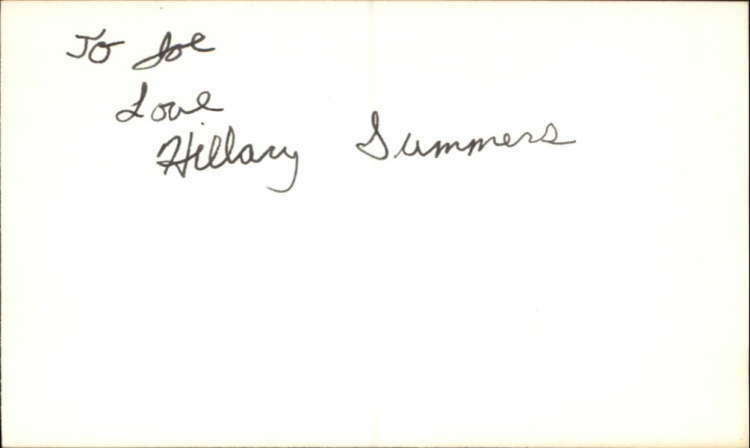 To Joe
Love
Hillary Summers